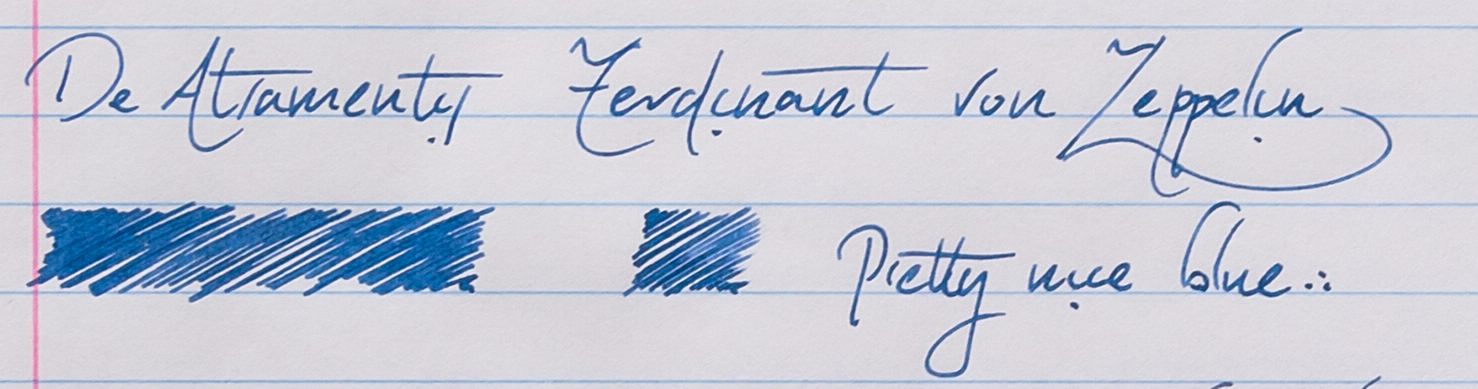 De Atramentis Ferdinant von Zeppelin
Pretty nice blue...